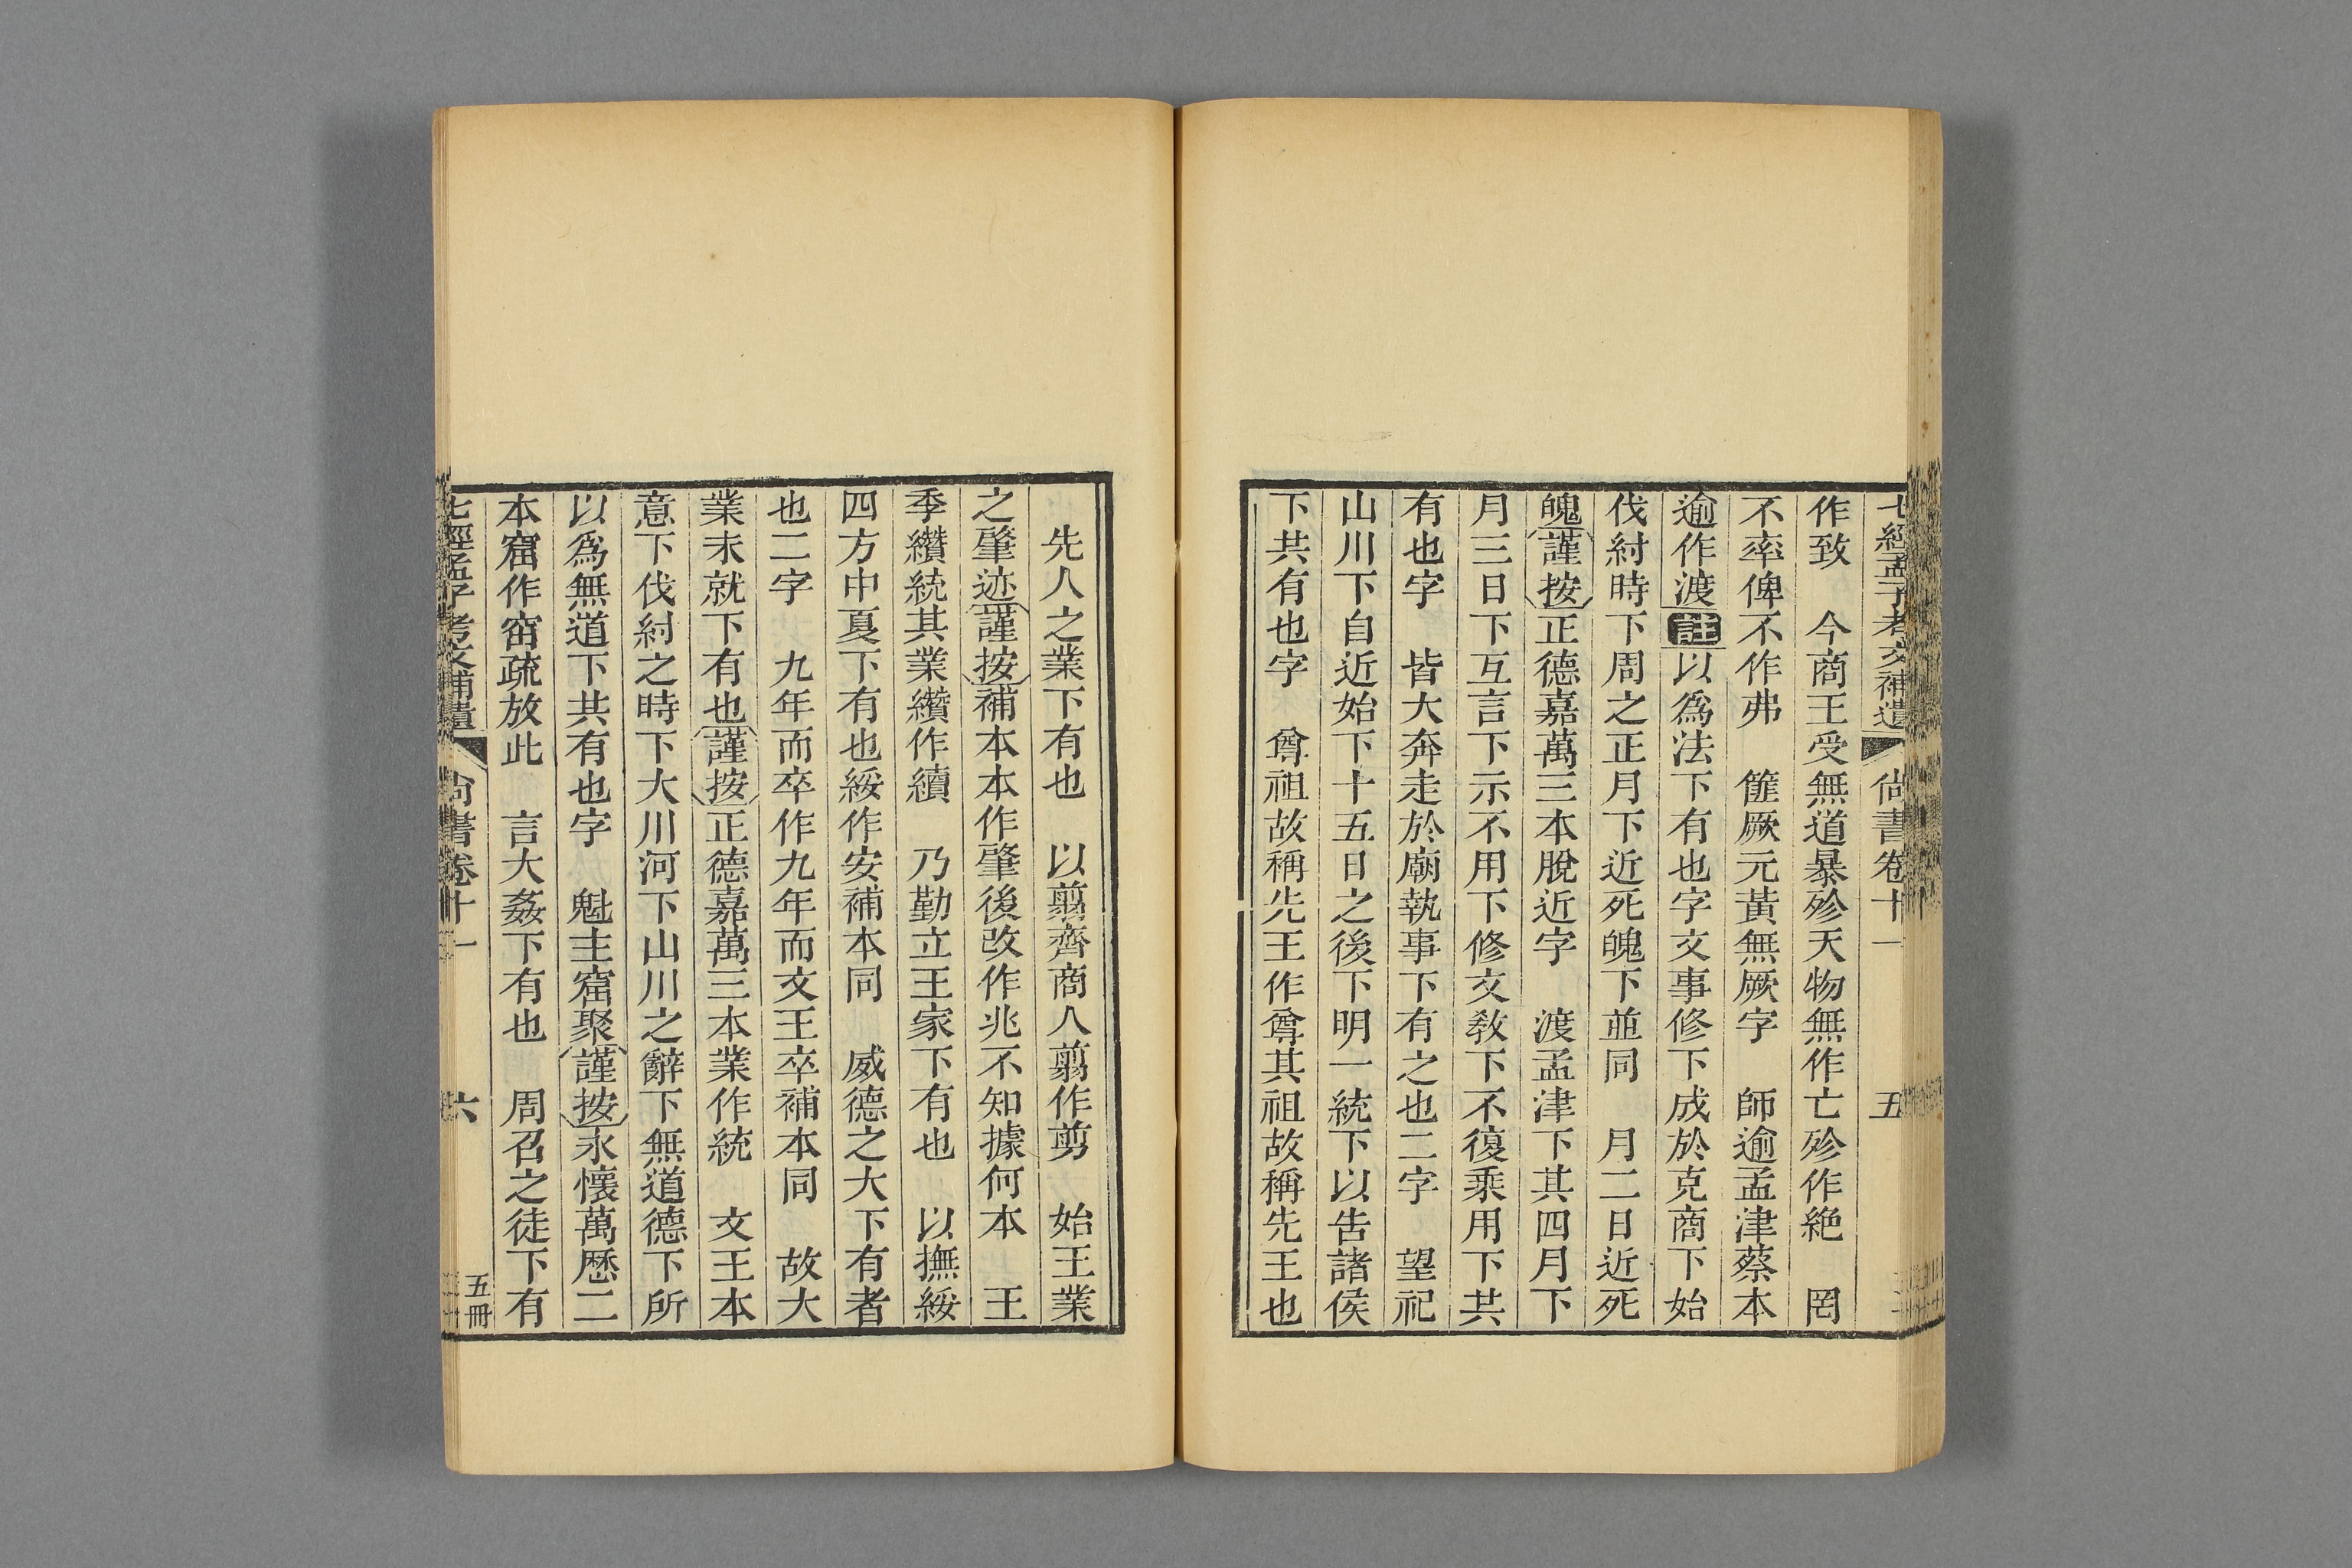 七經孟子考文補遺 尚書卷十一 五
作致　今商王受無道暴殄天物無作亡殄作絶　罔
不率俾不作弗　篚厥元黃無厥字　師逾孟津蔡本
逾作渡註以爲法下有也字文事修下成於克商下始
伐紂時下周之正月下近死魄下並同　月二日近死
魄謹按正德嘉萬三本脫近字　渡孟津下其四月下
月三日下互言下示不用下修文敎下不復乘用下共
有也字　皆大奔走於廟執事下有之也二字　望祀
山川下自近始下十五日之後下明一統下以告諸侯
下共有也字　尊祖故稱先王作尊其祖故稱先王也
先人之業下有也　以翦齊商人翦作剪　始王業
之肇迹謹按補本本作肇後改作兆不知據何本　王
季纘統其業纘作續　乃勤立王家下有也　以撫綏
四方中夏下有也綏作安補本同　威德之大下有者
也二字　九年而卒作九年而文王卒補本同　故大
業未就下有也謹按正德嘉萬三本業作統　文王本
意下伐紂之時下大川河下山川之辭下無道德下所
以爲無道下共有也字　魁主窟聚謹按永懷萬歷二
本窟作窋疏放此　言大姦下有也　周召之徒下有
七經孟子考文補遺 尚書卷十一 六 五冊